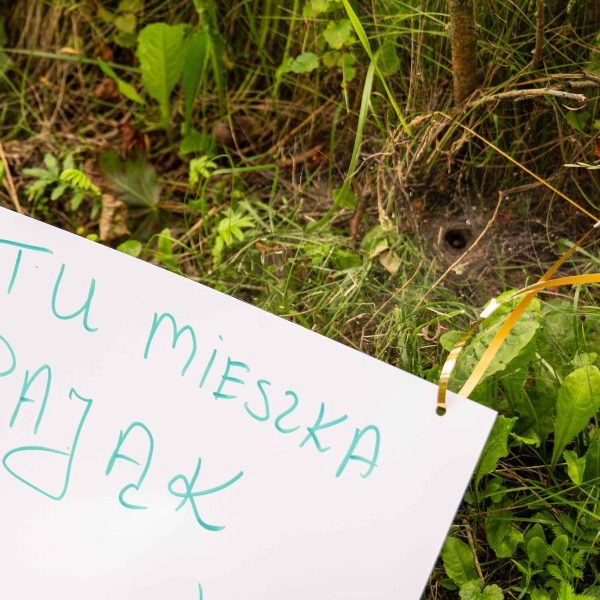 TU MIESZKA
PAJĄK